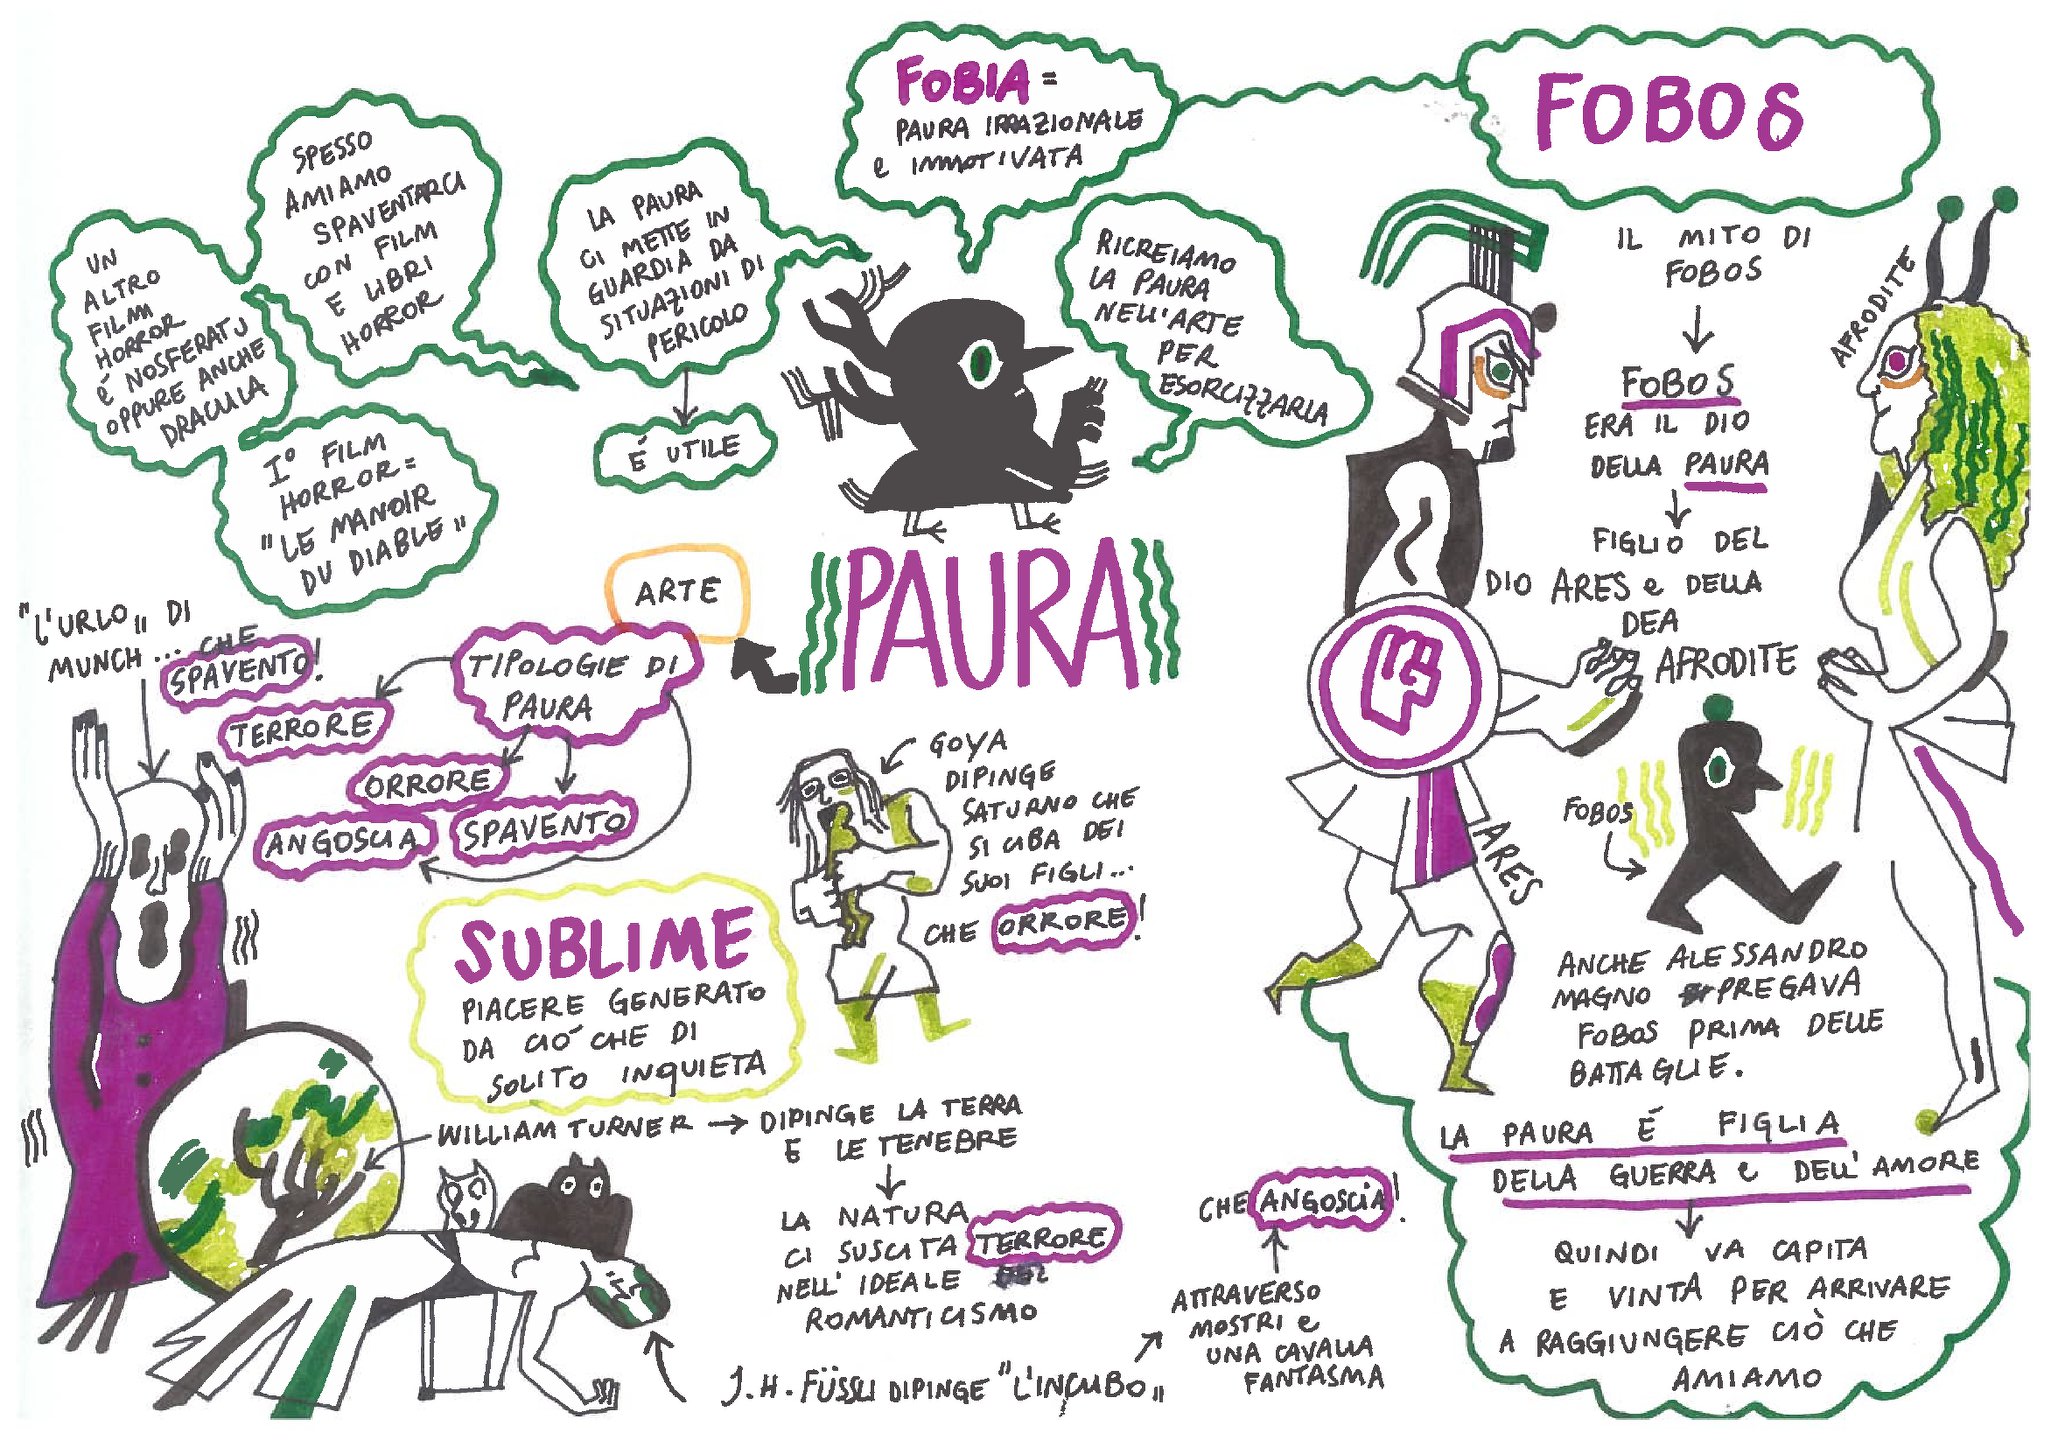 FOBIA =
PAURA IRRAZIONALE
e IMMOTIVATA
FOBOS
SPESSO
AMIAMO
SPAVENTARCI
CON FILM
E LIBRI
HORROR
UN
ALTRO
FILM
HORROR
É NOSFERATU
OPPURE ANCHE
DRACULA
I° FILM
HORROR =
"LE MANOIR
DU DIABLE"
LA PAURA
CI METTE IN
GUARDIA DA
SITUAZIONI DI
PERICOLO
É UTILE
RICREIAMO
LA PAURA
NELL'ARTE
PER
ESORCIZZARLA
PAURA
ARTE
TIPOLOGIE DI
PAURA
TERRORE
ORRORE
SPAVENTO
ANGOSCIA
"L'URLO" DI
MUNCH... CHE
SPAVENTO!
GOYA
DIPINGE
SATURNO CHE
SI CIBA DEI
SUOI FIGLI...
CHE ORRORE!
SUBLIME
PIACERE GENERATO
DA CIÓ CHE DI
SOLITO INQUIETA
WILLIAM TURNER → DIPINGE LA TERRA
E LE TENEBRE
LA NATURA
CI SUSCITA TERRORE
NELL'IDEALE
ROMANTICISMO
J.H. FÜSSLI DIPINGE "L'INCUBO"
ATTRAVERSO
MOSTRI e
UNA CAVALLA
FANTASMA
CHE ANGOSCIA!
IL MITO DI
FOBOS
FOBOS
ERA IL DIO
DELLA PAURA
FIGLIO DEL
DIO ARES e DELLA
DEA
AFRODITE
AFRODITE
ARES
FOBOS
ANCHE ALESSANDRO
MAGNO PREGAVA
FOBOS PRIMA DELLE
BATTAGLIE.
LA PAURA É FIGLIA
DELLA GUERRA e DELL'AMORE
QUINDI VA CAPITA
E VINTA PER ARRIVARE
A RAGGIUNGERE CIÒ CHE
AMIAMO